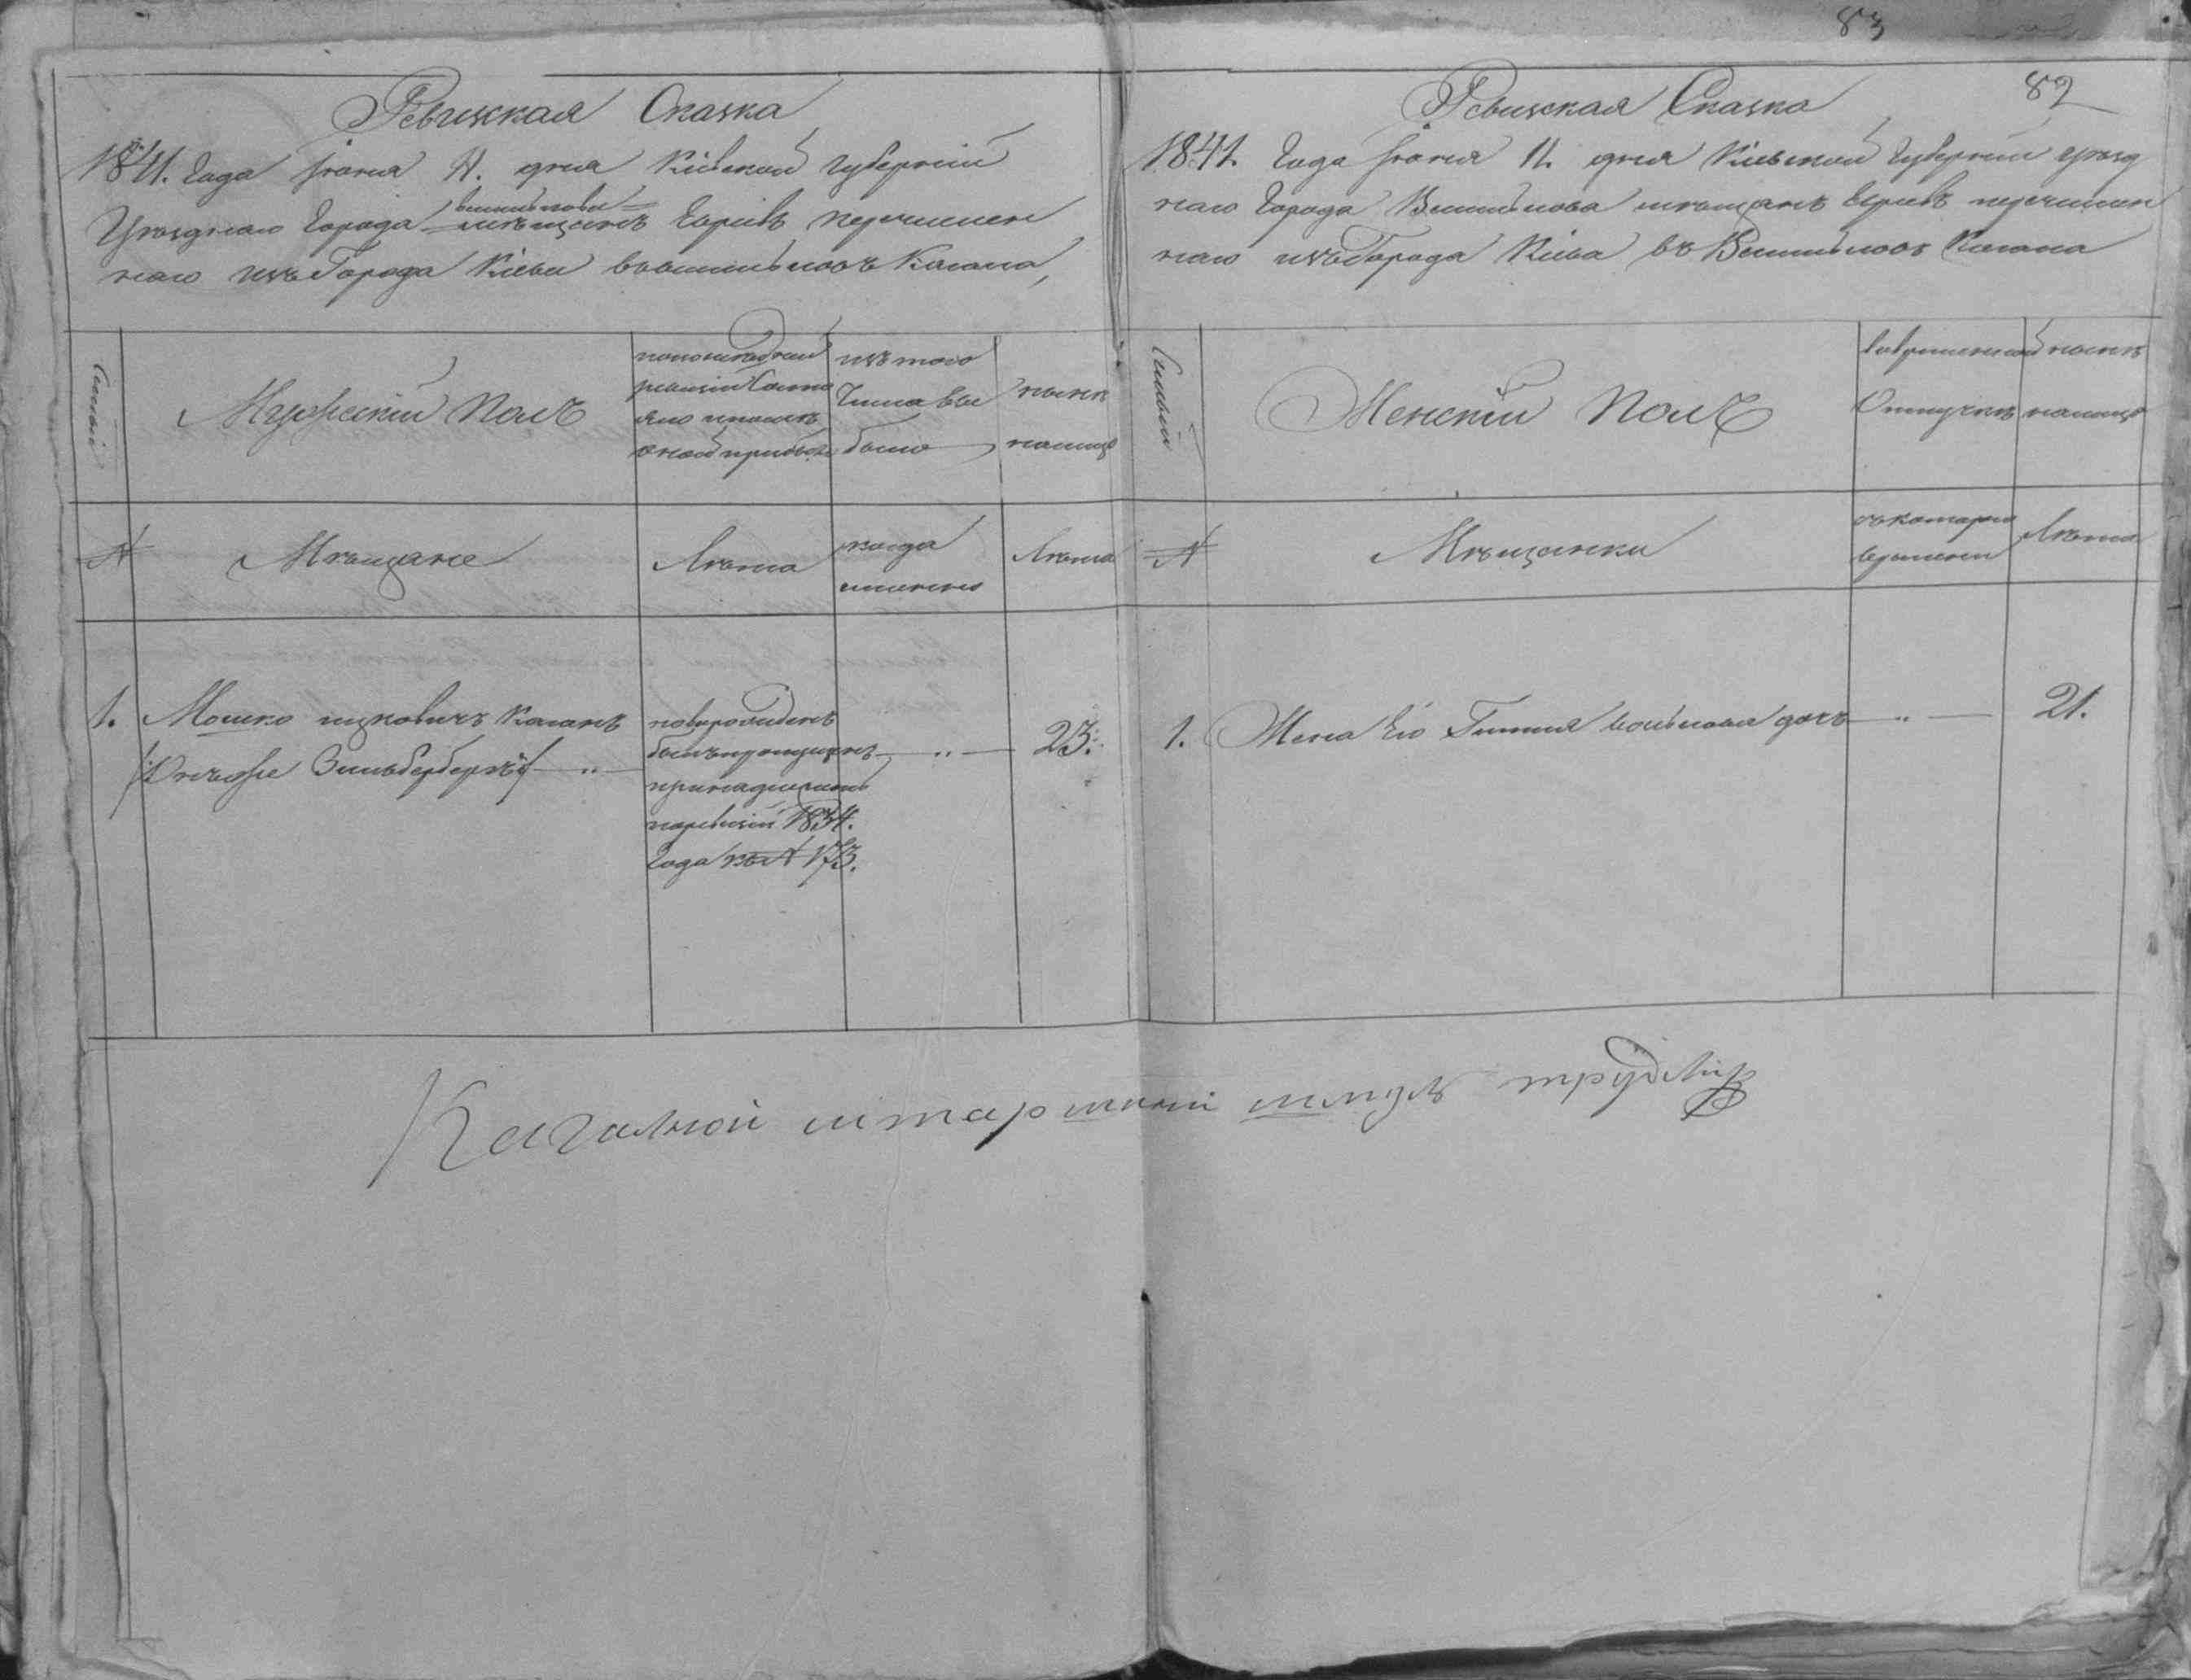 83
Ревижская Сказка
1841. Года Іюня 11. дня Кіевской Губерніи
Уезднаго Города Василькова мѣщанъ Евреевъ перечислен
наго изъ Города Кіева въ Васильковъ Когана
Семьи
Мужескій Полъ
По последней ревизіи состояло и после оной прибыло
изъ того числа выбыло
Нынѣ налицо
№
Мѣщане
Лѣта
когда именно
Лѣта
1. Мошко Ицковичъ Коганъ
/Онъ же Зильбербергъ/
принадлежитъ
по ревизіи 1834.
Года № 173.
23.
82
Ревижская Сказка
1841. Года Іюня 11. дня Кіевской Губерніи Уезд
наго Города Василькова мѣщанъ Евреевъ перечислен
наго изъ Города Кіева въ Васильковъ Когана
Семьи
Женскій Полъ
Во временной Отлучкѣ
нынѣ налицо
№
Мѣщанки
съ котораго времени
Лѣта
1. Жена Его Гитля дочь
21.
Кагалной